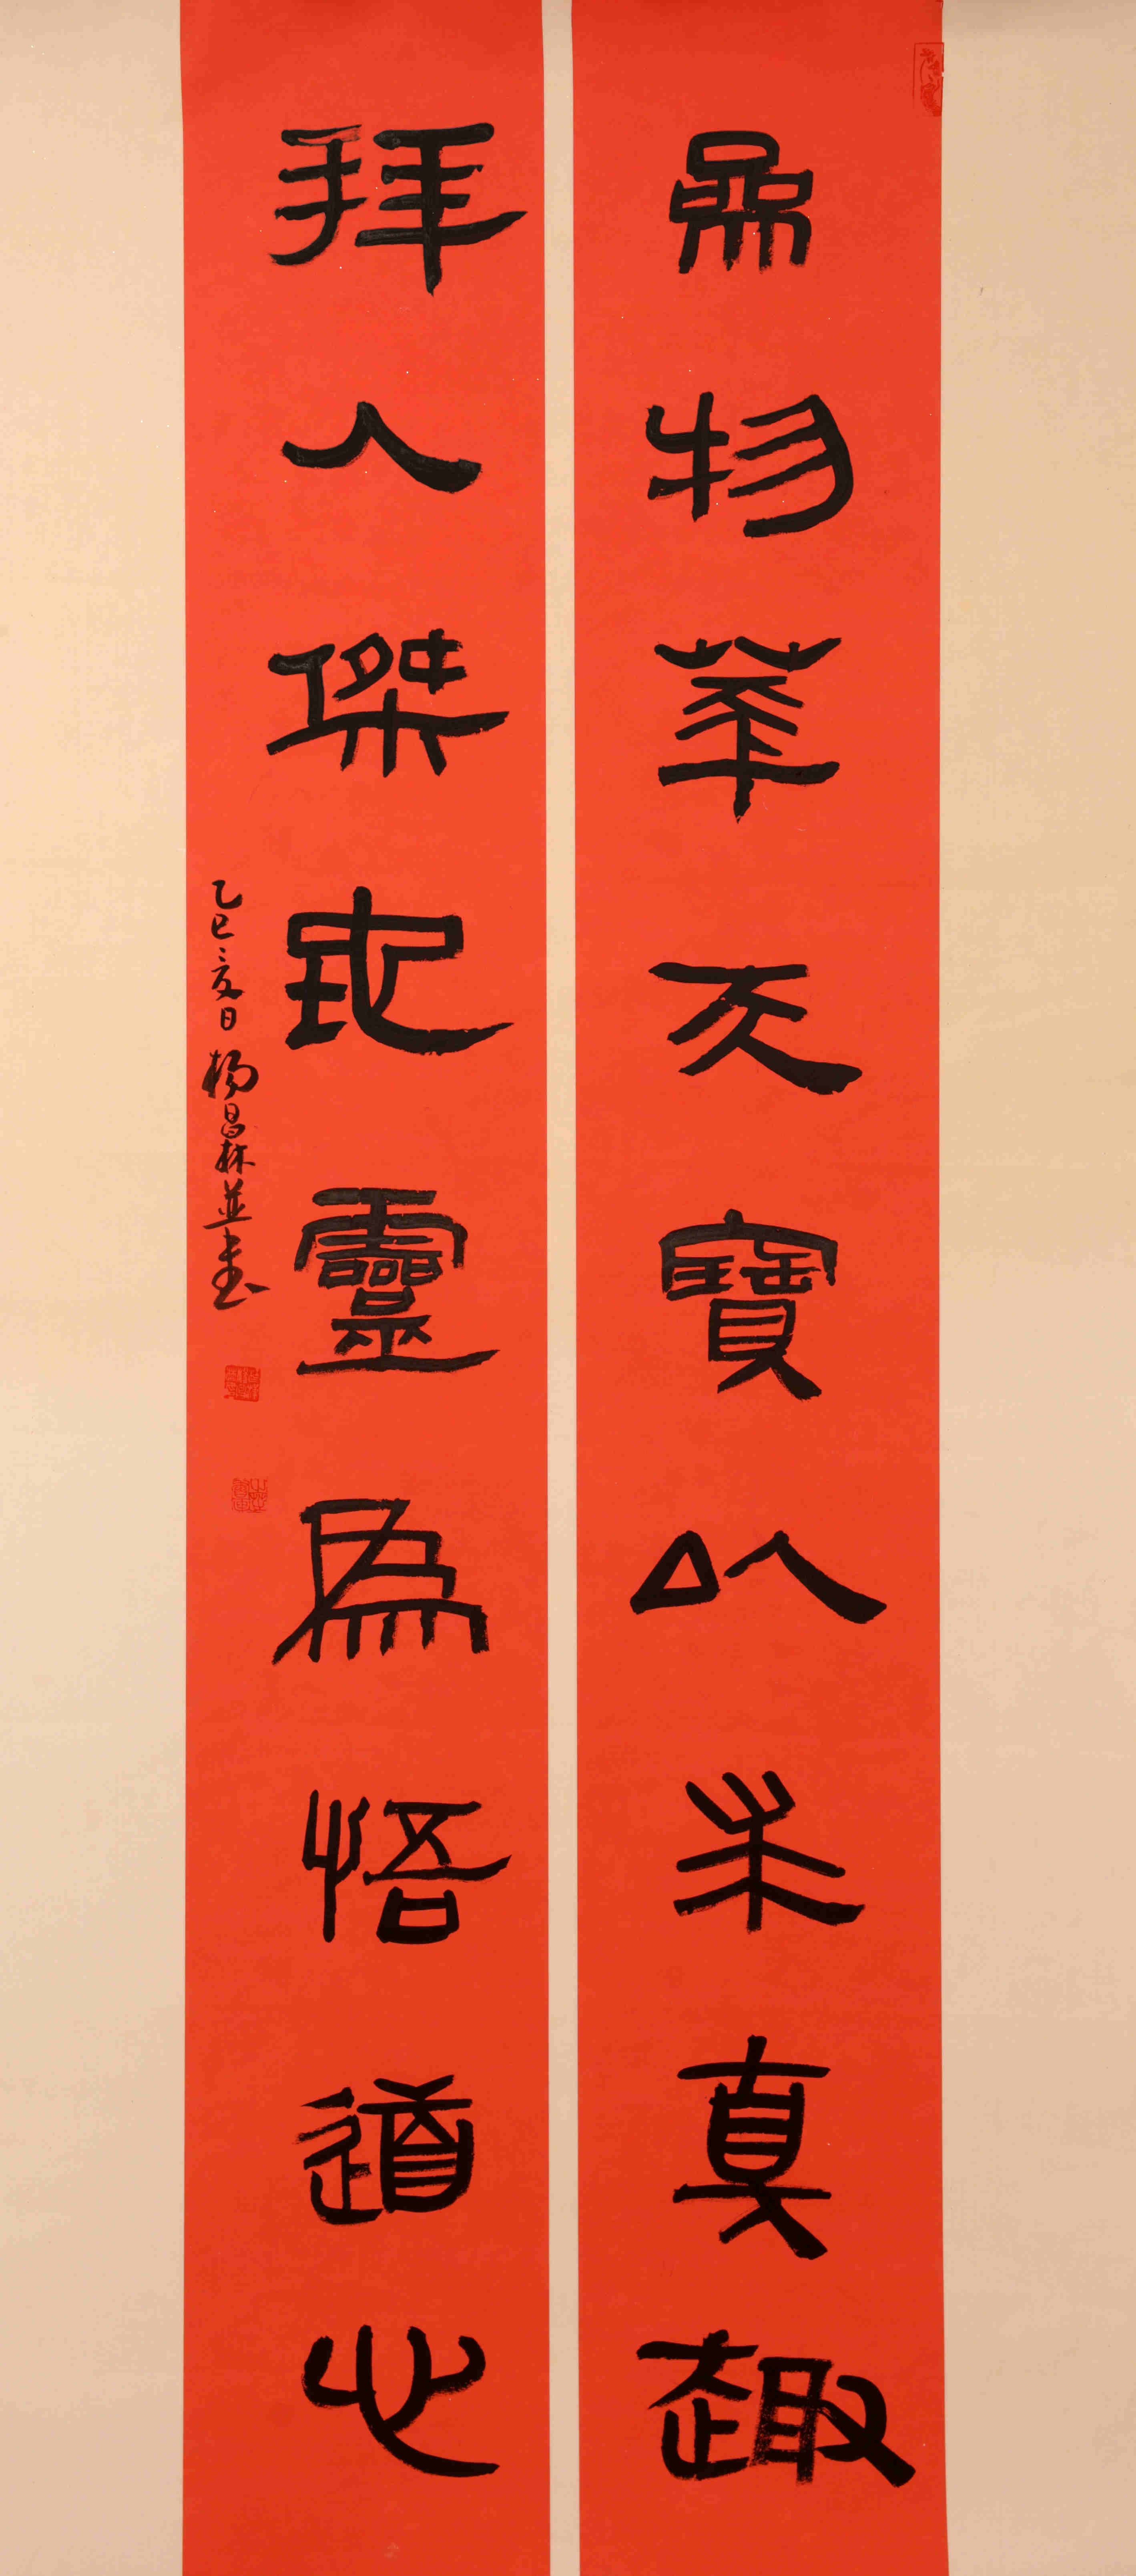 品物華天寶以求真趣
拜人傑地靈爲悟道心
乙巳夏日楊昌林並書